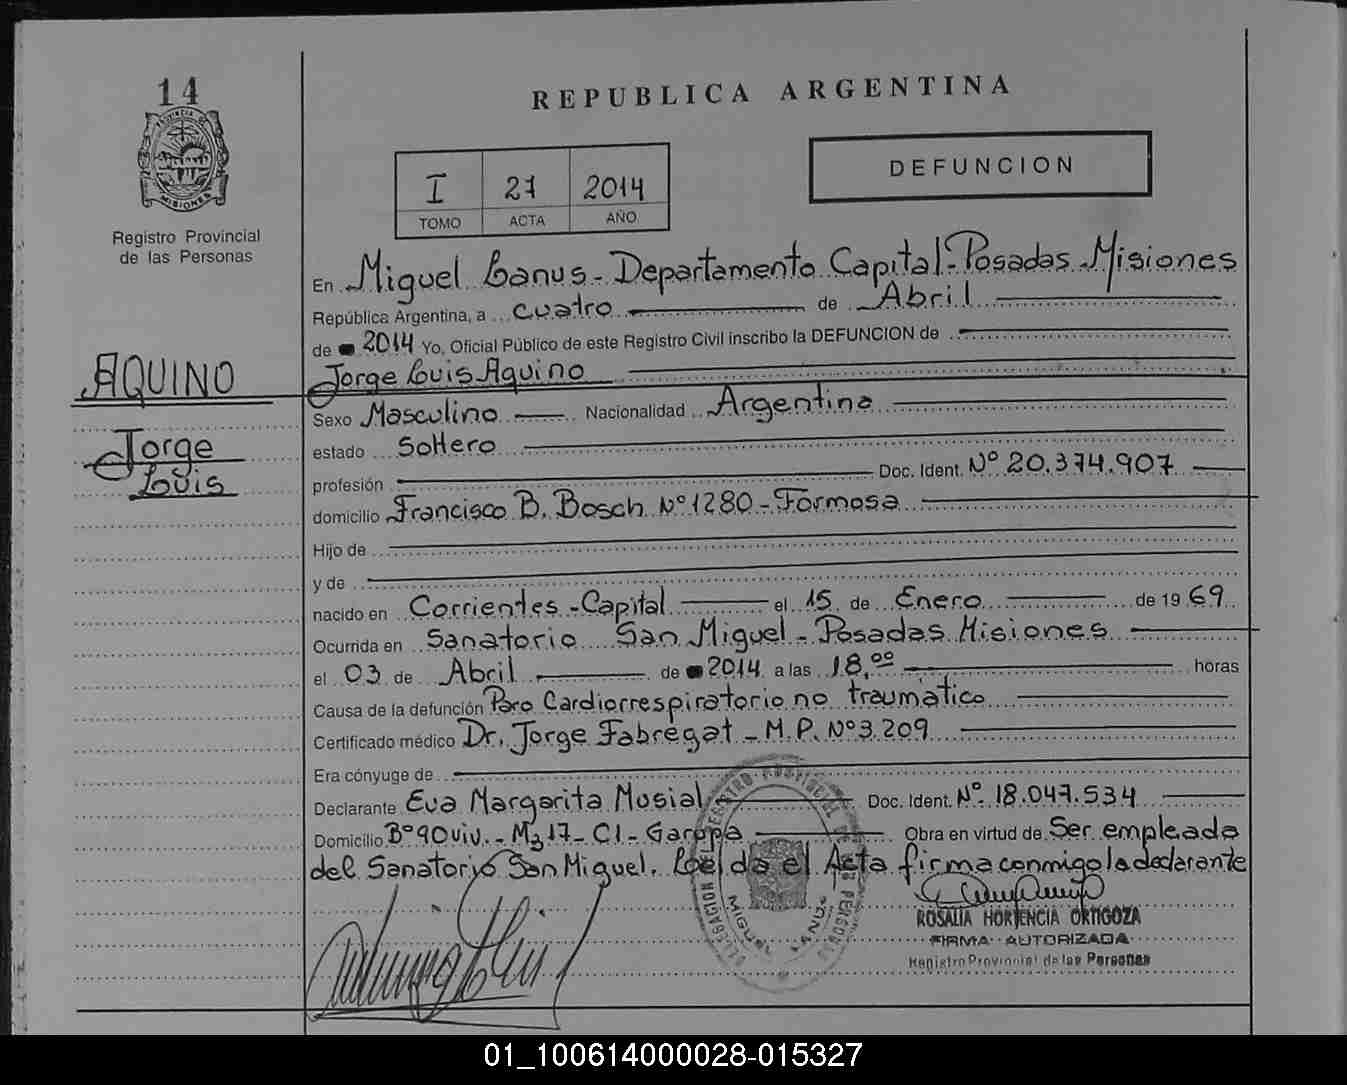 14
PROVINCIA DE
MISIONES
Registro Provincial
de las Personas
REPUBLICA ARGENTINA
I 27 2014
TOMO ACTA AÑO
DEFUNCION
En Miguel Lanus - Departamento Capital - Posadas Misiones
República Argentina, a cuatro de Abril
de 2014 Yo, Oficial Público de este Registro Civil inscribo la DEFUNCION de
AQUINO
Jorge Luis Aquino
Sexo Masculino Nacionalidad Argentina
Jorge
estado Soltero
Luis
profesión Doc. Ident. Nº 20.374.907
domicilio Francisco B. Bosch Nº 1280 - Formosa
Hijo de
y de
nacido en Corrientes - Capital el 15 de Enero de 19 69
Ocurrida en Sanatorio San Miguel - Posadas Misiones
el 03 de Abril de 2014 a las 18,00 horas
Causa de la defunción Paro Cardiorrespiratorio no traumático
Certificado médico Dr. Jorge Fabregat - M.P. Nº 3.209
Era cónyuge de
Declarante Eva Margarita Musial Doc. Ident. Nº 18.047.534
Domicilio Bº 90 viv. - Mz 17 - C1 - Garupa Obra en virtud de Ser empleada
del Sanatorio San Miguel. Leída el Acta firma conmigo la declarante
DELEGACION REGISTRO PROVINCIAL DE LAS PERSONAS
MIGUEL LANUS
ROSALIA HORTENCIA ORTIGOZA
FIRMA AUTORIZADA
Registro Provincial de las Personas
01_100614000028-015327